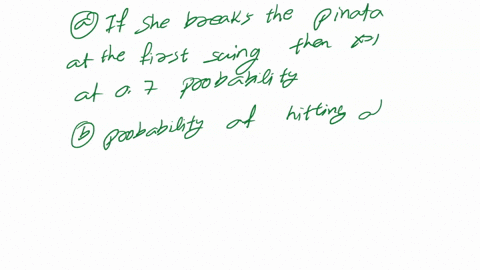 (a) If she breaks the pinata
at the first swing then x=1
at 0.7 probability
(b) probability of hitting